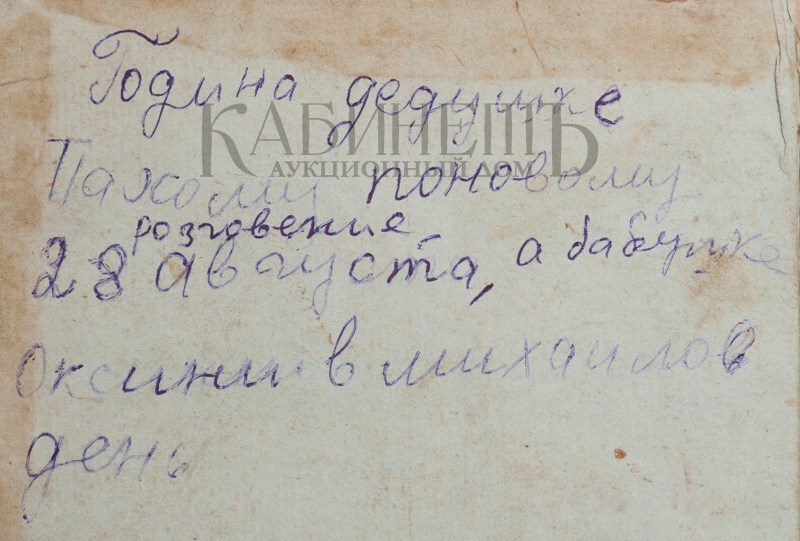 Година дедушке
КАБИНЕТЪ
АУКЦИОННЫЙ ДОМ
Пахому поновому
розговение
28 августа, а бабушке
Оксинии в михаилов
день